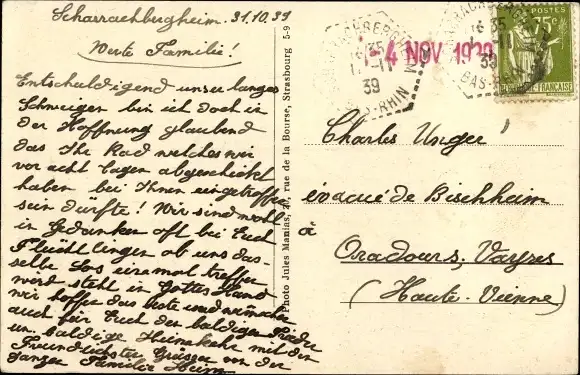 Scharrachbergheim. 31.10.39
Werte Familie!
Entschuldigend unser langes
Schweigen bin ich doch in
der Hoffnung glaubend
das Ihr Rad welches wir
vor acht Tagen abgeschickt
haben bei Ihnen eingetroffen
sein dürfte! Wir sind wohl
in Gedanken oft bei Euch
Flüchtlingen ob uns das-
selbe Los einmal treffen
wird steht in Gottes Hand
wir hoffen das beste und wünschen
auch für Euch den baldigen Frieden
un. baldige Heimkehr mit den
Freundlichsten Grüssen von der
ganzen Familie Heim
Photo Jules Manias, rue de la Bourse, Strasbourg 5-9
- 4 NOV 1939
16 35
39
BAS-RHIN
16 35
39
BAS-RHIN
POSTES
75c
FRANÇAISE
Charles Unger
évacué de Bischheim
à
Oradours, Vayres
(Haute-Vienne)